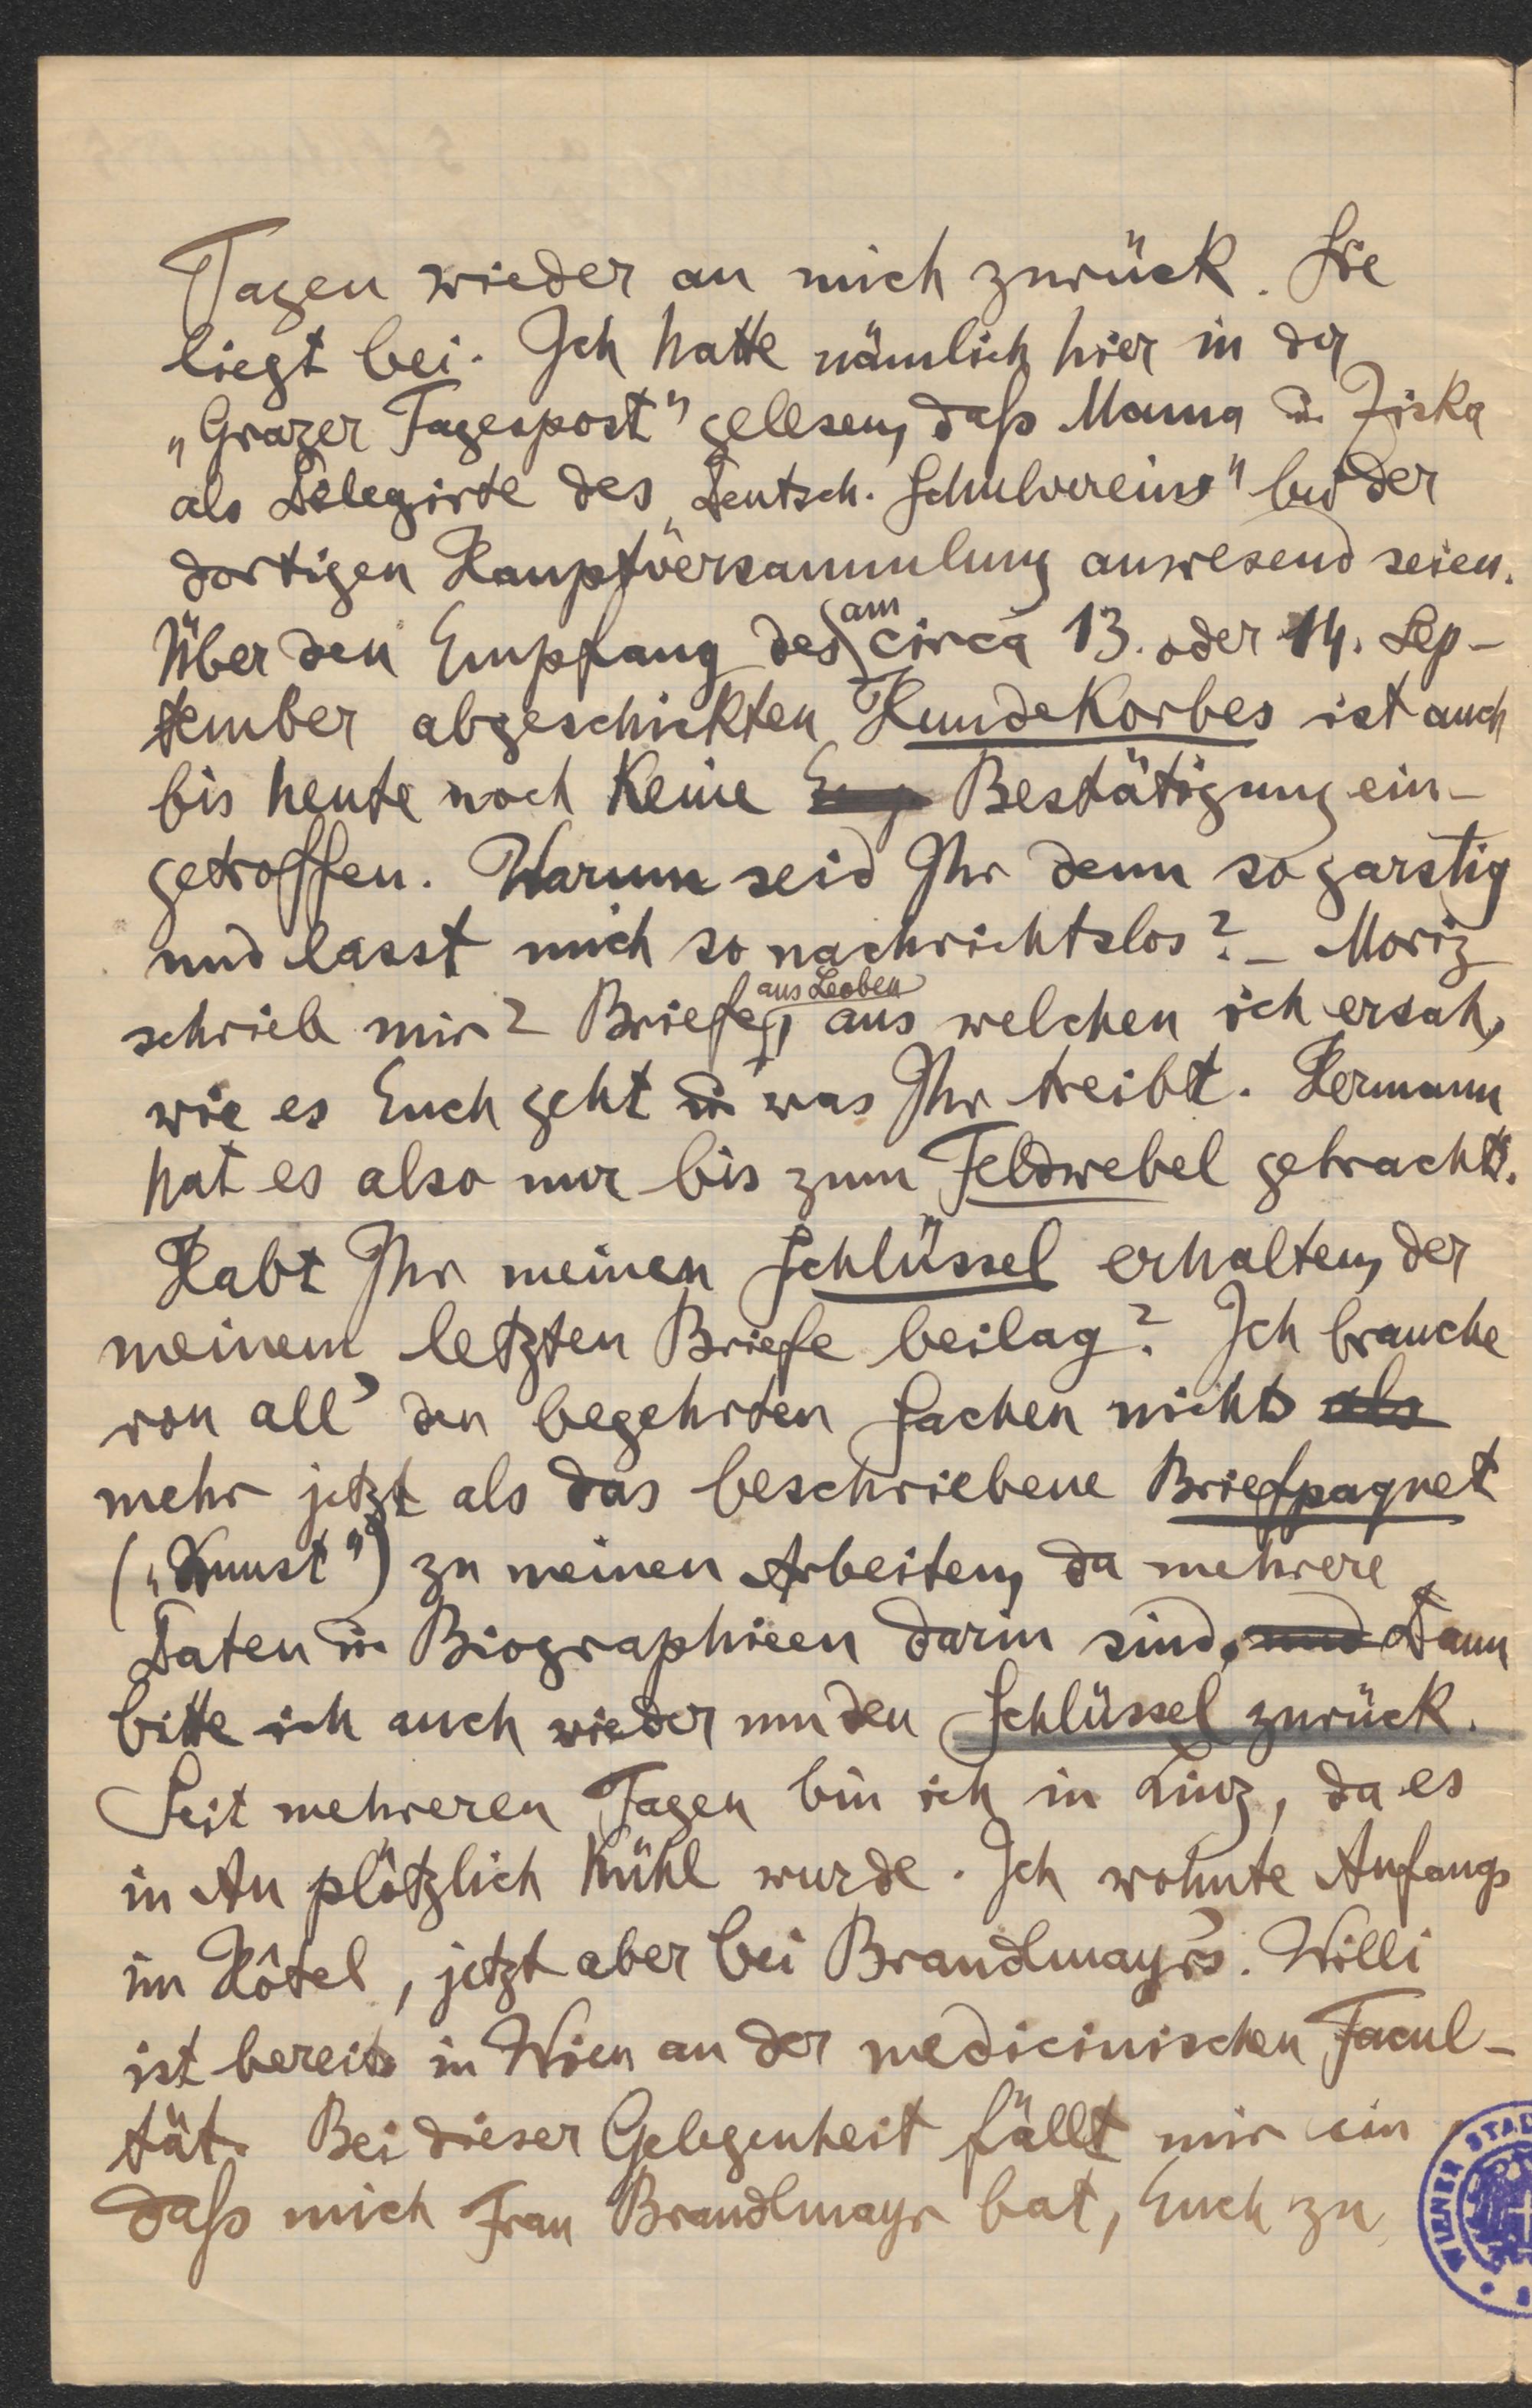 Tagen wieder an mich zurück. Sie
liegt bei. Ich hatte nämlich hier in der
„Grazer Tagespost" gelesen, daß Mama u. Ziska
als Delegirte des „Deutsch. Schulvereins" bei der
dortigen Hauptversammlung anwesend seien.
Über den Empfang des am circa 13. oder 14. Sep-
tember abgeschickten Hundekorbes ist auch
bis heute noch keine Bestätigung ein-
getroffen. Warum seid Ihr denn so garstig
und lasst mich so nachrichtslos? – Moriz
schrieb mir 2 Briefe aus Leoben, aus welchen ich ersah,
wie es Euch geht u. was Ihr treibt. Hermann
hat es also nur bis zum Feldwebel gebracht.
Habt Ihr meinen Schlüssel erhalten, der
meinem letzten Briefe beilag? Ich brauche
von all' den begehrten Sachen nichts als
mehr jetzt als das beschriebene Briefpaquet
(„Kunst") zu meinen Arbeiten, da mehrere
Daten u. Biographieen darin sind, und Dann
bitte ich auch wieder um den Schlüssel zurück.
Seit mehreren Tagen bin ich in Linz, da es
in Au plötzlich kühl wurde. Ich wohnte Anfangs
im Hôtel, jetzt aber bei Brandlmayr's. Willi
ist bereits in Wien an der medicinischen Facul-
tät. Bei dieser Gelegenheit fällt mir ein
daß mich Frau Brandlmayr bat, Euch zu
WIENER STAD